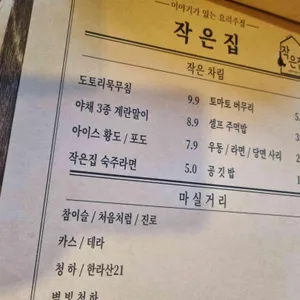 이야기가 있는 요리주점
작은집
작은 차림
도토리묵무침 9.9
야채 3종 계란말이 8.9
아이스 황도 / 포도 7.9
작은집 숙주라면 5.0
토마토 버무리 5.
셀프 주먹밥 3.
우동 / 라면 / 당면 사리 2
공깃밥
마실거리
참이슬 / 처음처럼 / 진로
카스 / 테라
청하 / 한라산21
별빛청하